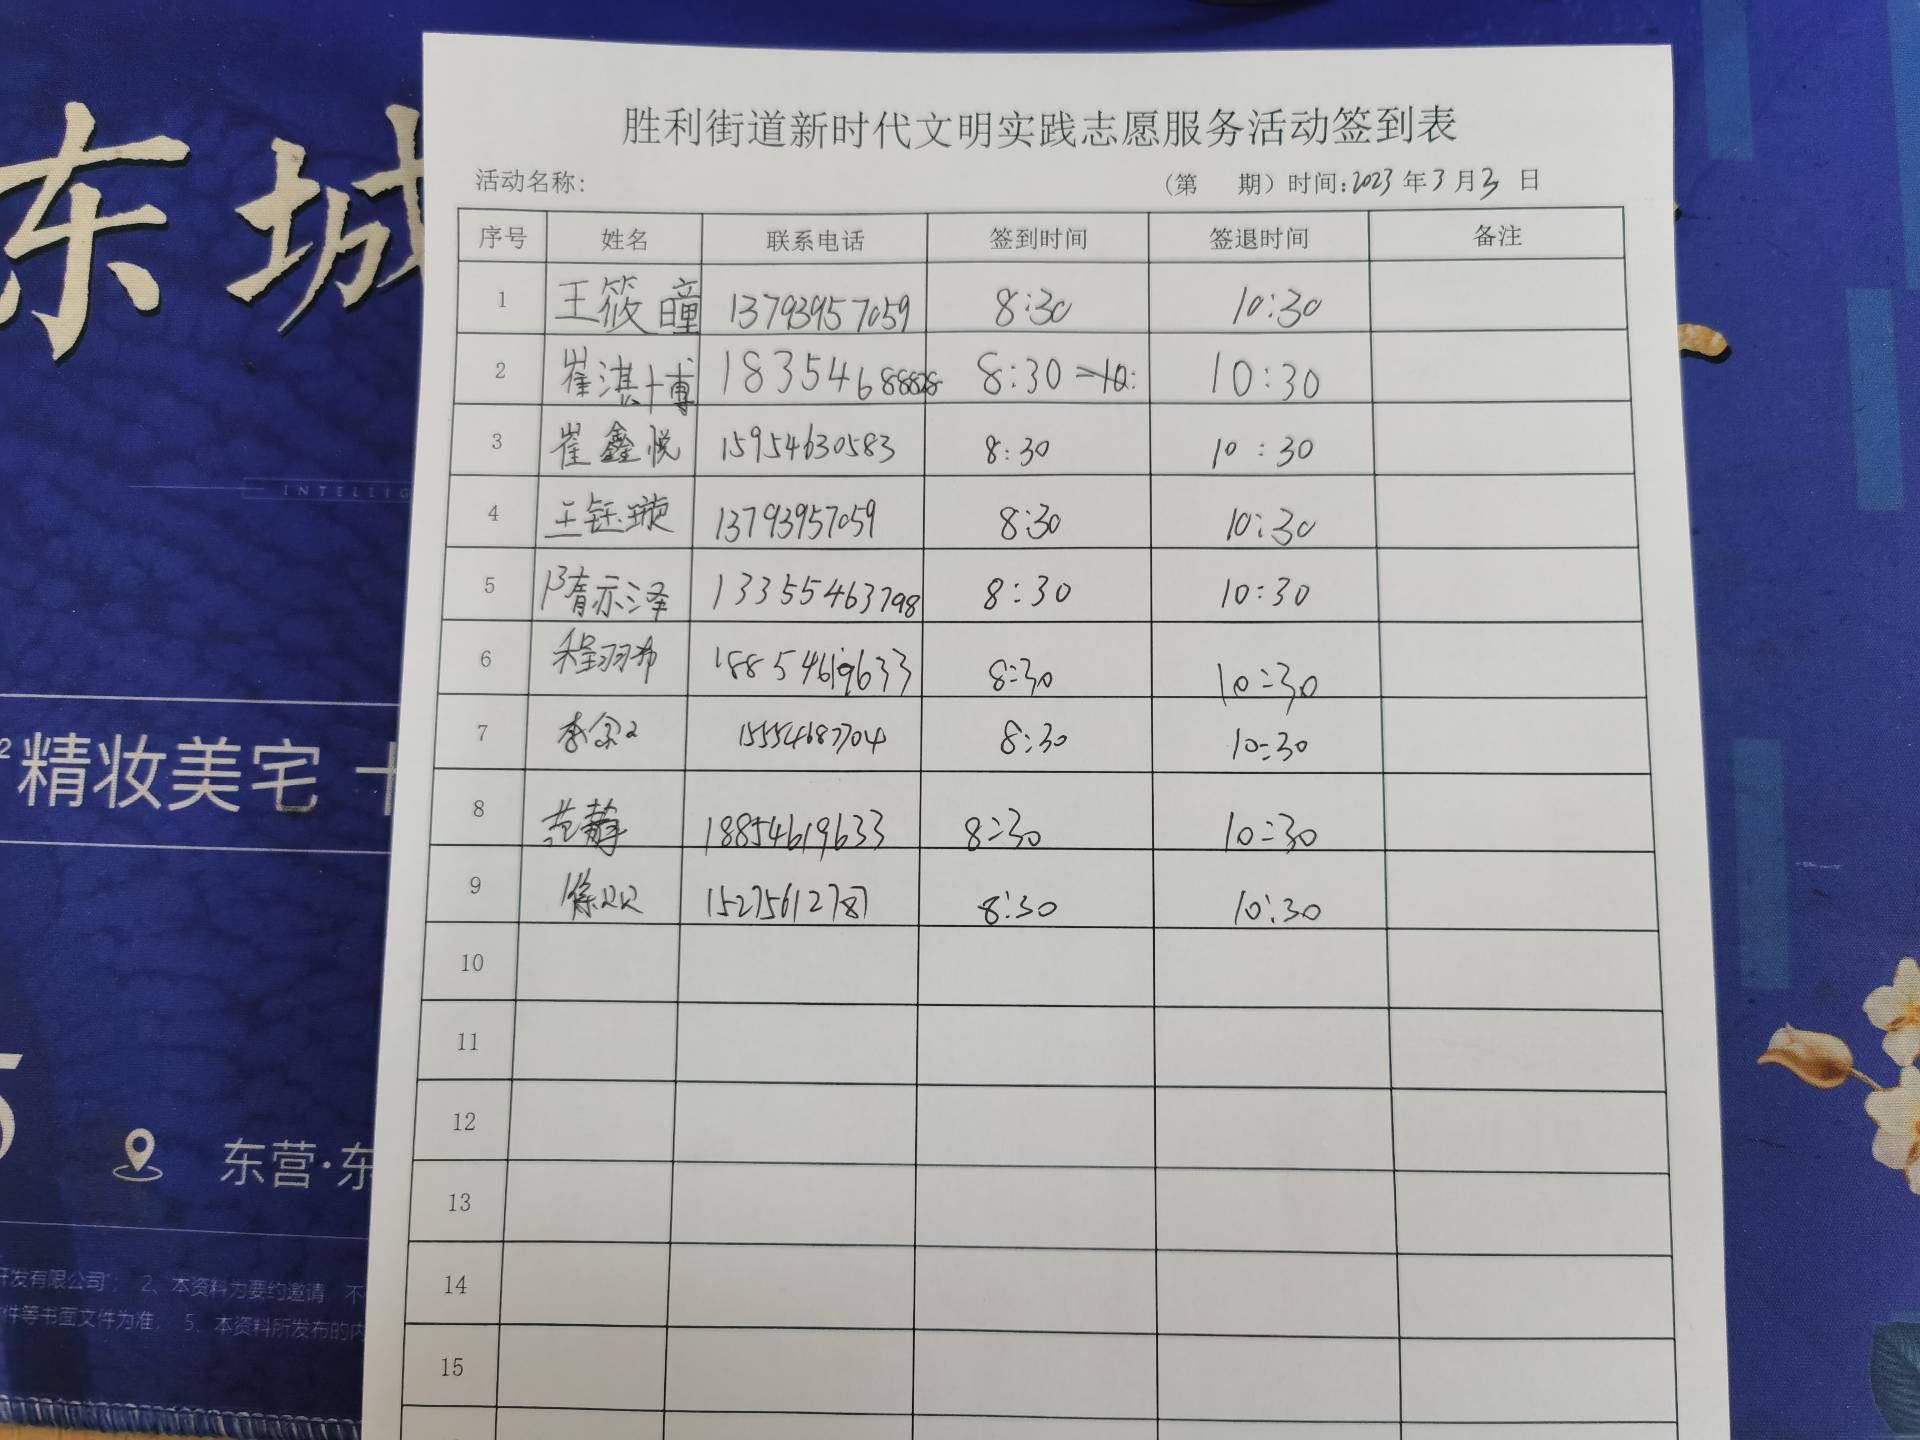 胜利街道新时代文明实践志愿服务活动签到表
活动名称: (第 期) 时间:2023年3月3日
序号 姓名 联系电话 签到时间 签退时间 备注
1 王筱曈 13793957059 8:30 10:30
2 崔淇博 8:30 10: 10:30
3 崔鑫悦 15954630583 8:30 10:30
4 王钰璇 13793957059 8:30 10:30
5 隋亦泽 13355463798 8:30 10:30
6 程羽布 18854619633 8:30 10:30
7 15554687704 8:30 10:30
8 范静 18854619633 8:30 10:30
9 徐双双 15275612787 8:30 10:30
10
11
12
13
14
15
东城
INTELLIG
精妆美宅
东营·东
开发有限公司"; 2、本资料为要约邀请 不
件等书面文件为准; 5、本资料所发布的内